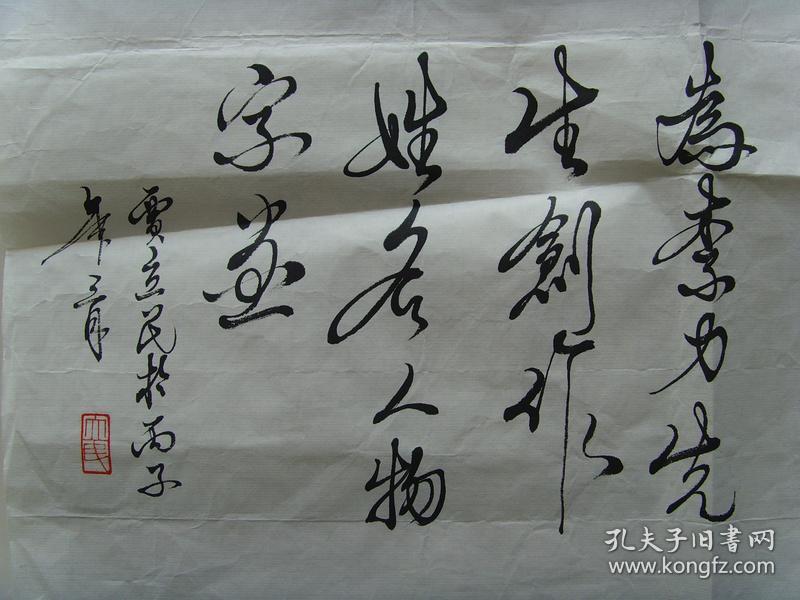 為李力先
生創作
姓名人物
字画
賈立民於丙子
年三月
立民
孔夫子旧书网
www.kongfz.com